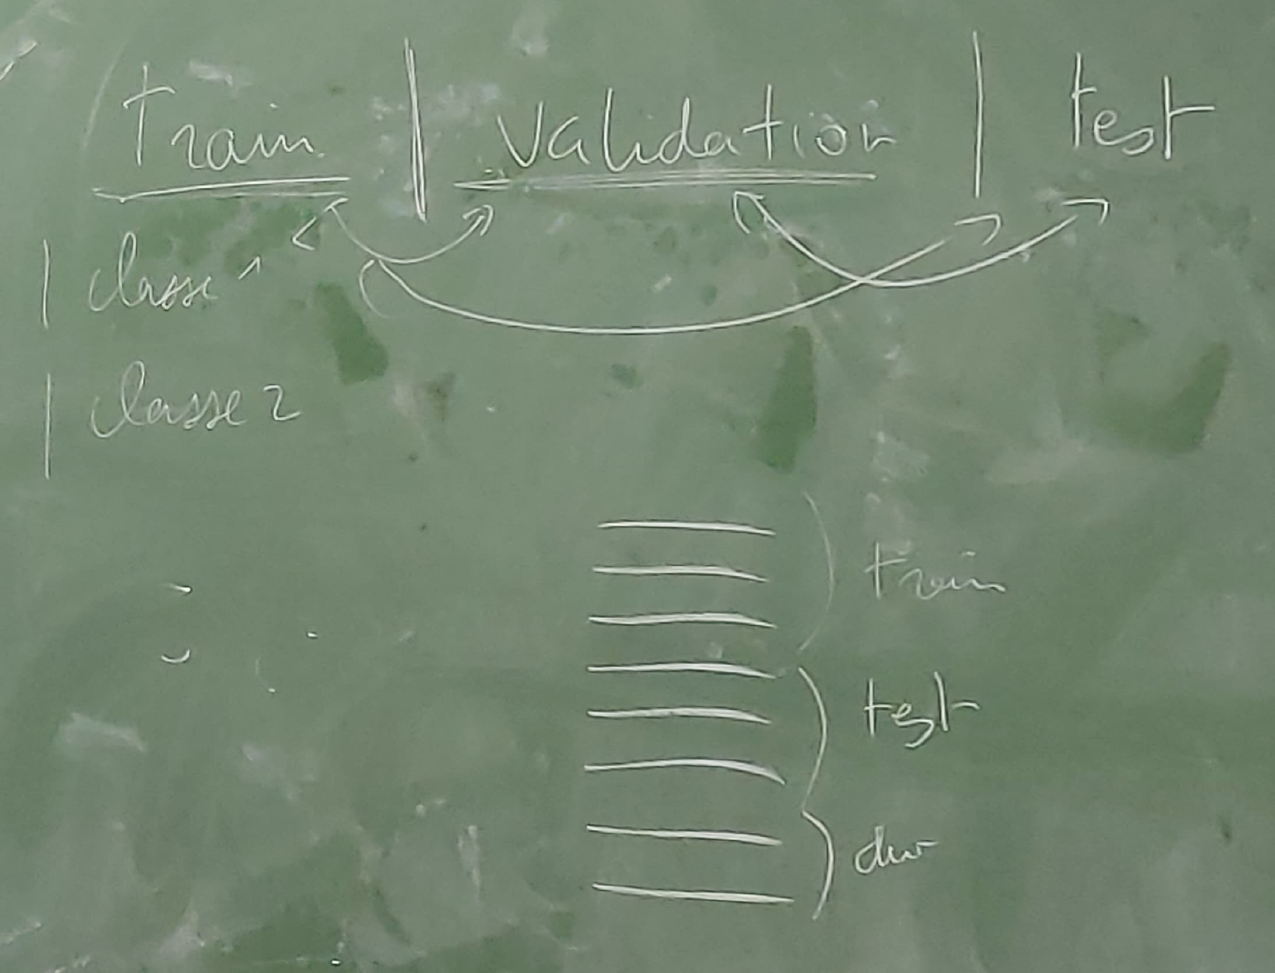 Train | validation | test
classe 1
classe 2
train
test
dev